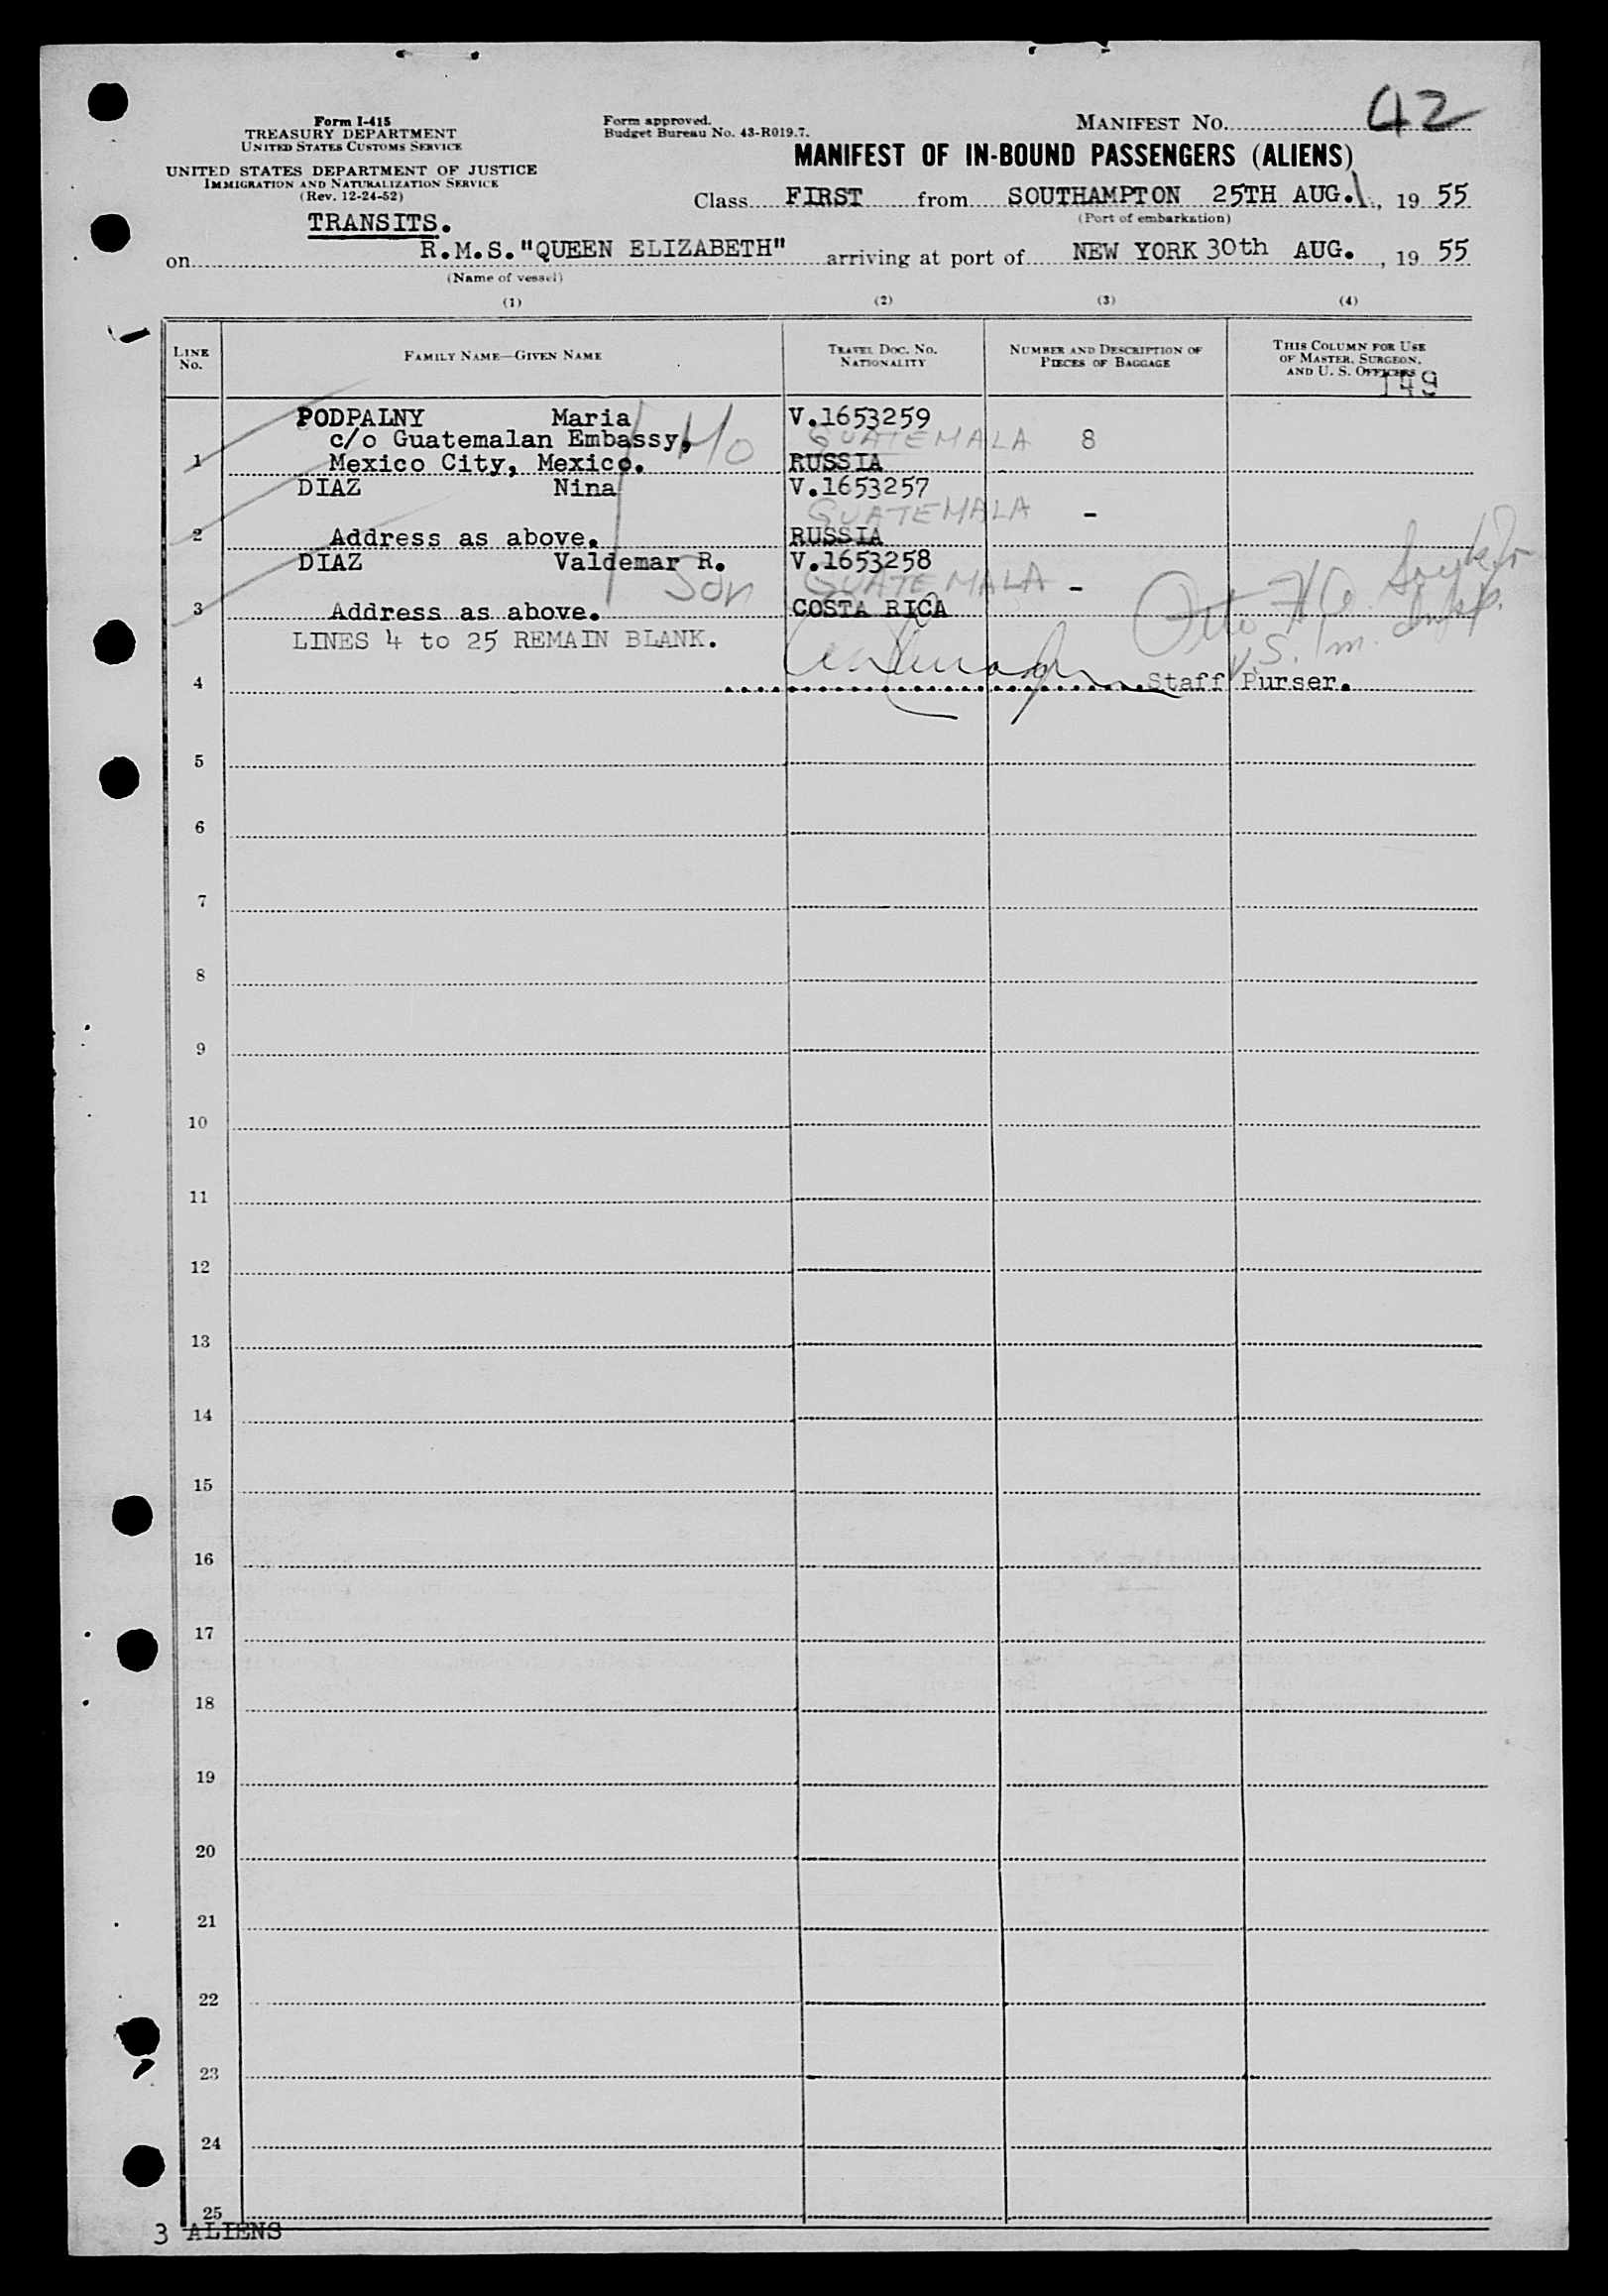 Form I-415
TREASURY DEPARTMENT
UNITED STATES CUSTOMS SERVICE
UNITED STATES DEPARTMENT OF JUSTICE
IMMIGRATION AND NATURALIZATION SERVICE
(Rev. 12-24-52)
TRANSITS.
Form approved.
Budget Bureau No. 43-R019.7.
MANIFEST NO. 42
MANIFEST OF IN-BOUND PASSENGERS (ALIENS)
Class FIRST from SOUTHAMPTON 25TH AUG., 19 55
(Port of embarkation)
on R.M.S. "QUEEN ELIZABETH" arriving at port of NEW YORK 30th AUG., 19 55
(Name of vessel)
(1) (2) (3) (4)
LINE No. FAMILY NAME—GIVEN NAME TRAVEL DOC. NO. NATIONALITY NUMBER AND DESCRIPTION OF PIECES OF BAGGAGE THIS COLUMN FOR USE OF MASTER, SURGEON, AND U. S. OFFICERS
149
PODPALNY Maria V.1653259
c/o Guatemalan Embassy, Mo GUATEMALA 8
1 Mexico City, Mexico. RUSSIA
DIAZ Nina V.1653257
GUATEMALA -
2 Address as above. RUSSIA
DIAZ Valdemar R. V.1653258
Son GUATEMALA -
3 Address as above. COSTA RICA
Otto
U.S. Im. Insp.
LINES 4 to 25 REMAIN BLANK.
4 Staff Purser.
5
6
7
8
9
10
11
12
13
14
15
16
17
18
19
20
21
22
23
24
25
3 ALIENS